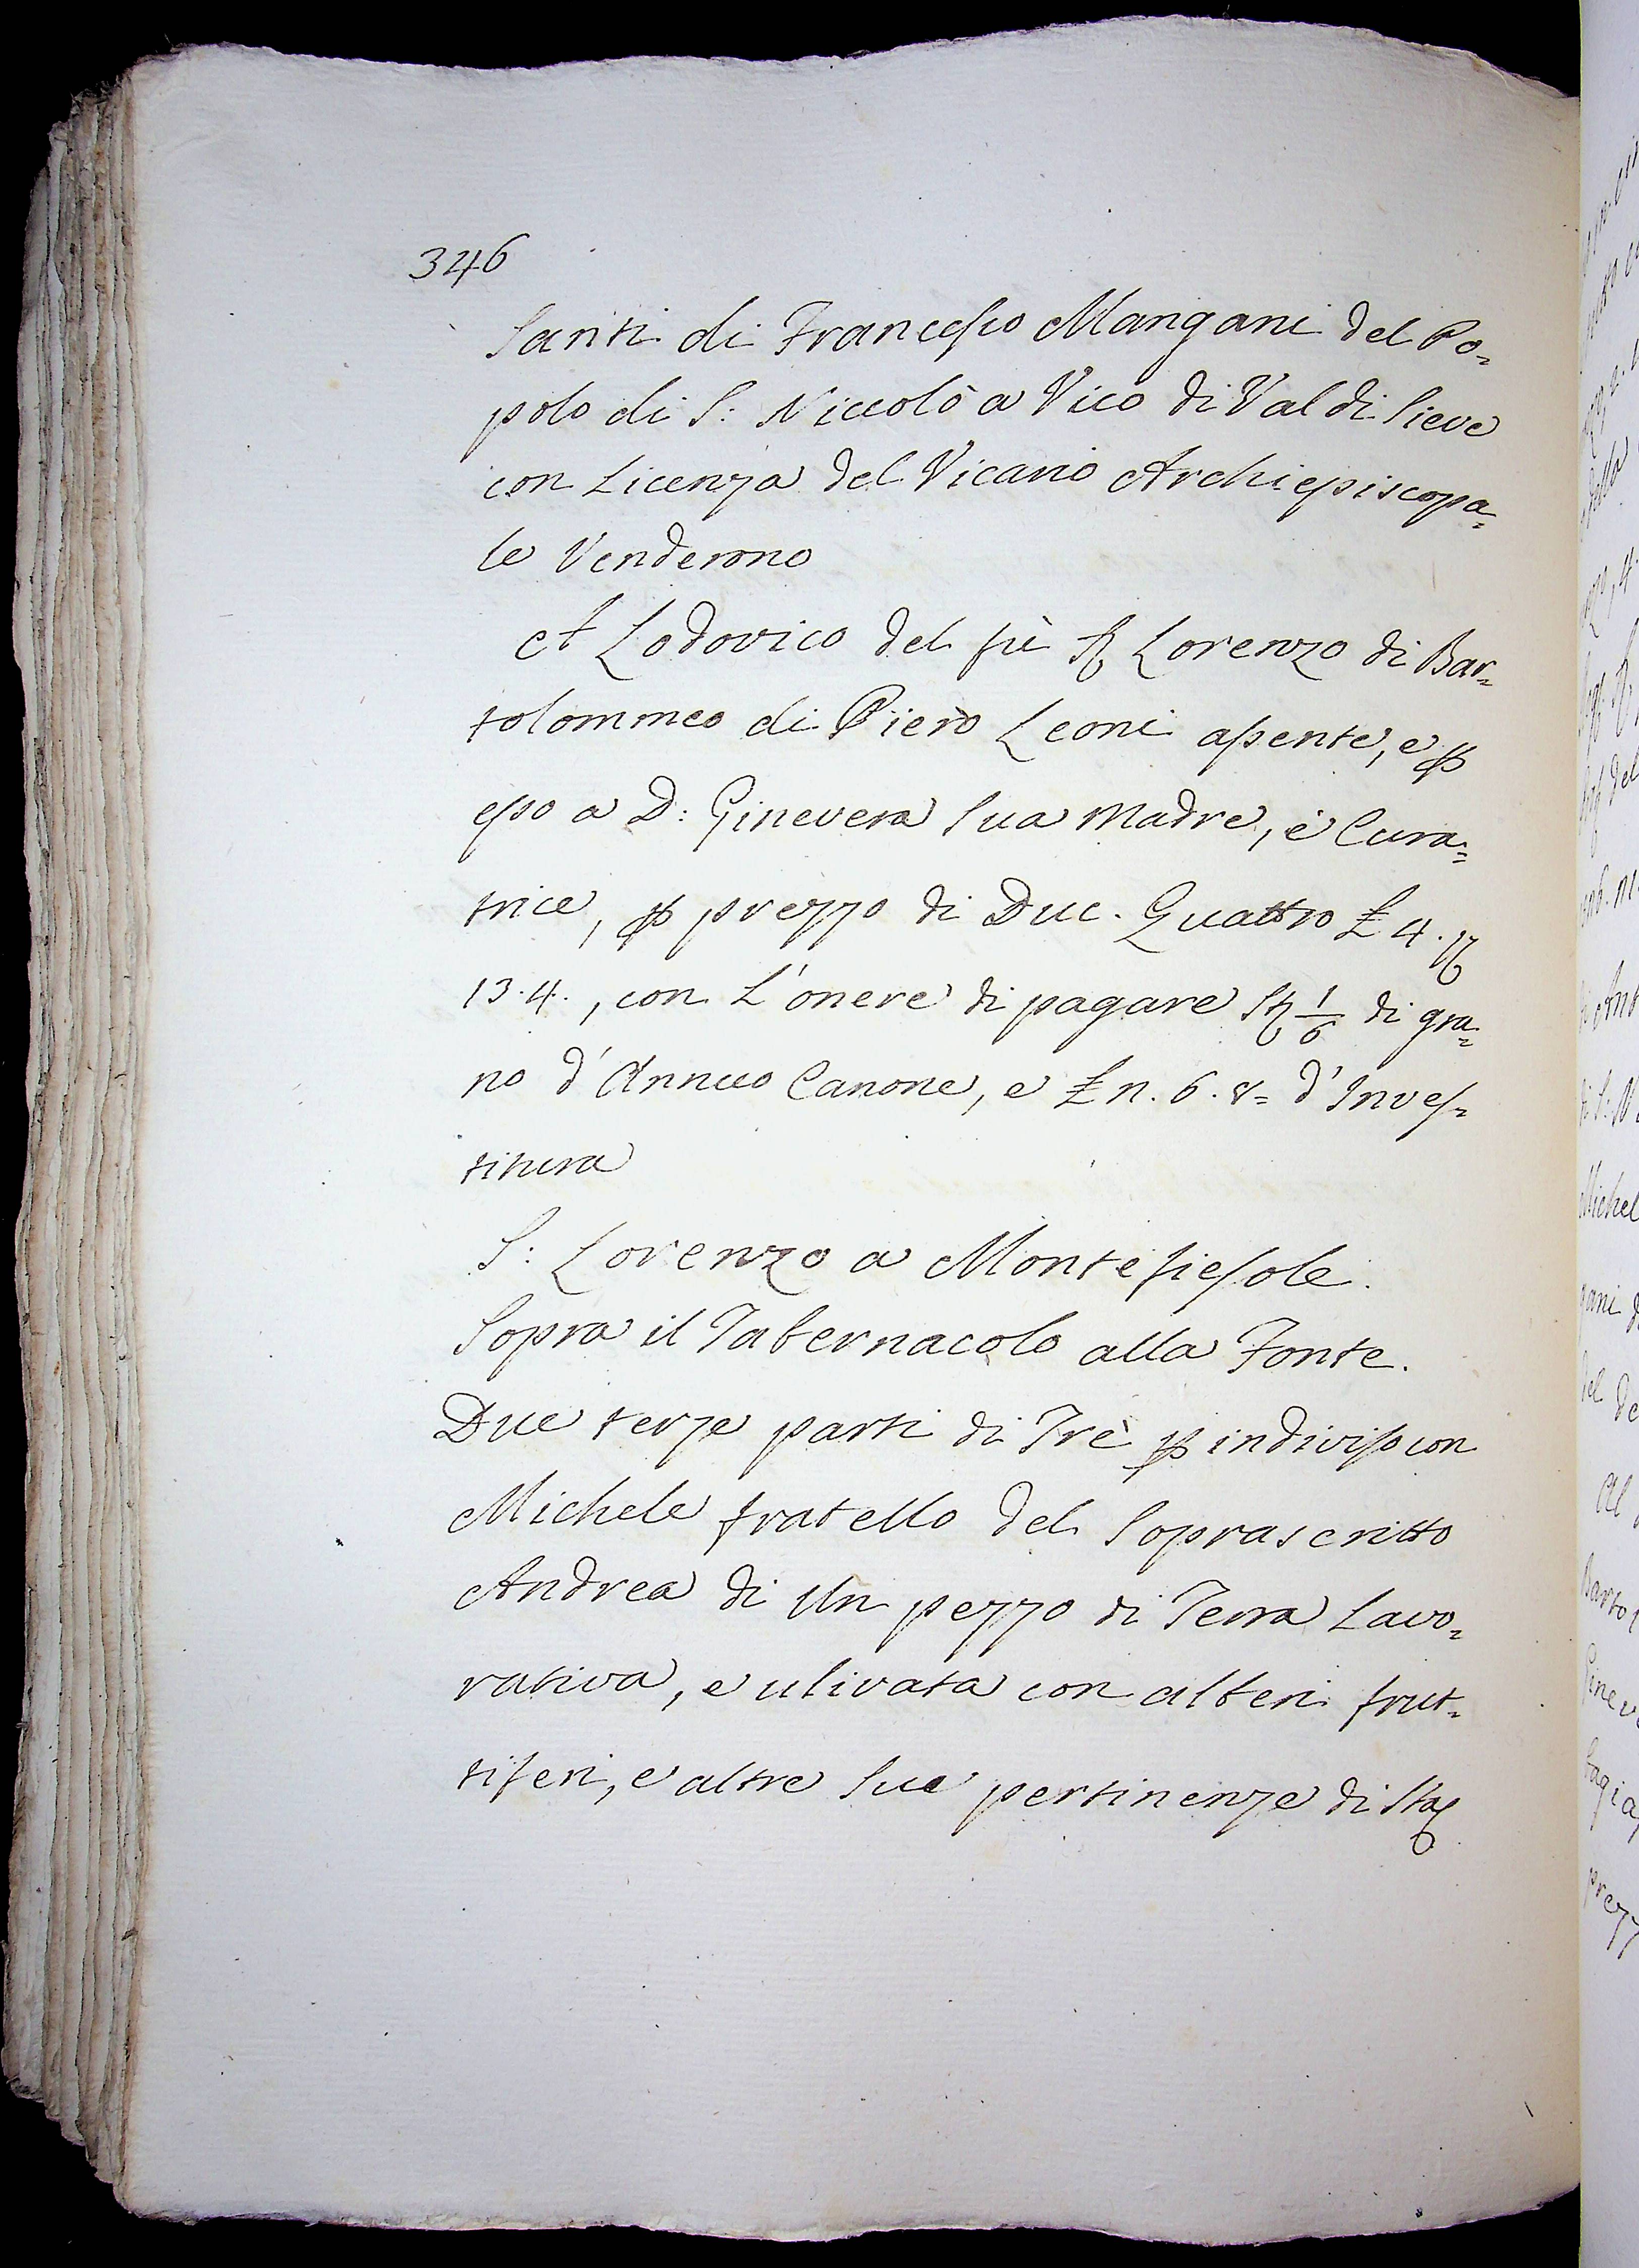 346
Santi di Francesco Mangani del Po=
polo di S: Niccolò a Vico di Val di Sieve
con Licenza del Vicario Archiepiscopa=
le Venderono
A Lodovico del fù Lorenzo di Bar=
tolommeo di Piero Leoni assente, e ꝑ
esso a D: Ginevera Sua Madre, e Cura=
trice, ꝑ prezzo di Duc. Quattro £ 4.
13.4., con L'onere di pagare 1/6 di gra=
no d'Annuo Canone, e £ n. 6. 8= d'Inves=
titura
S: Lorenzo a Montefiesole.
Sopra il Tabernacolo alla Fonte.
Due terze parti di Trè ꝑ indiviso con
Michele fratello del Soprascritto
Andrea di Un pezzo di Terra Lavo=
rativa, e ulivata con alberi frut=
tiferi, e altre Sue pertinenze di